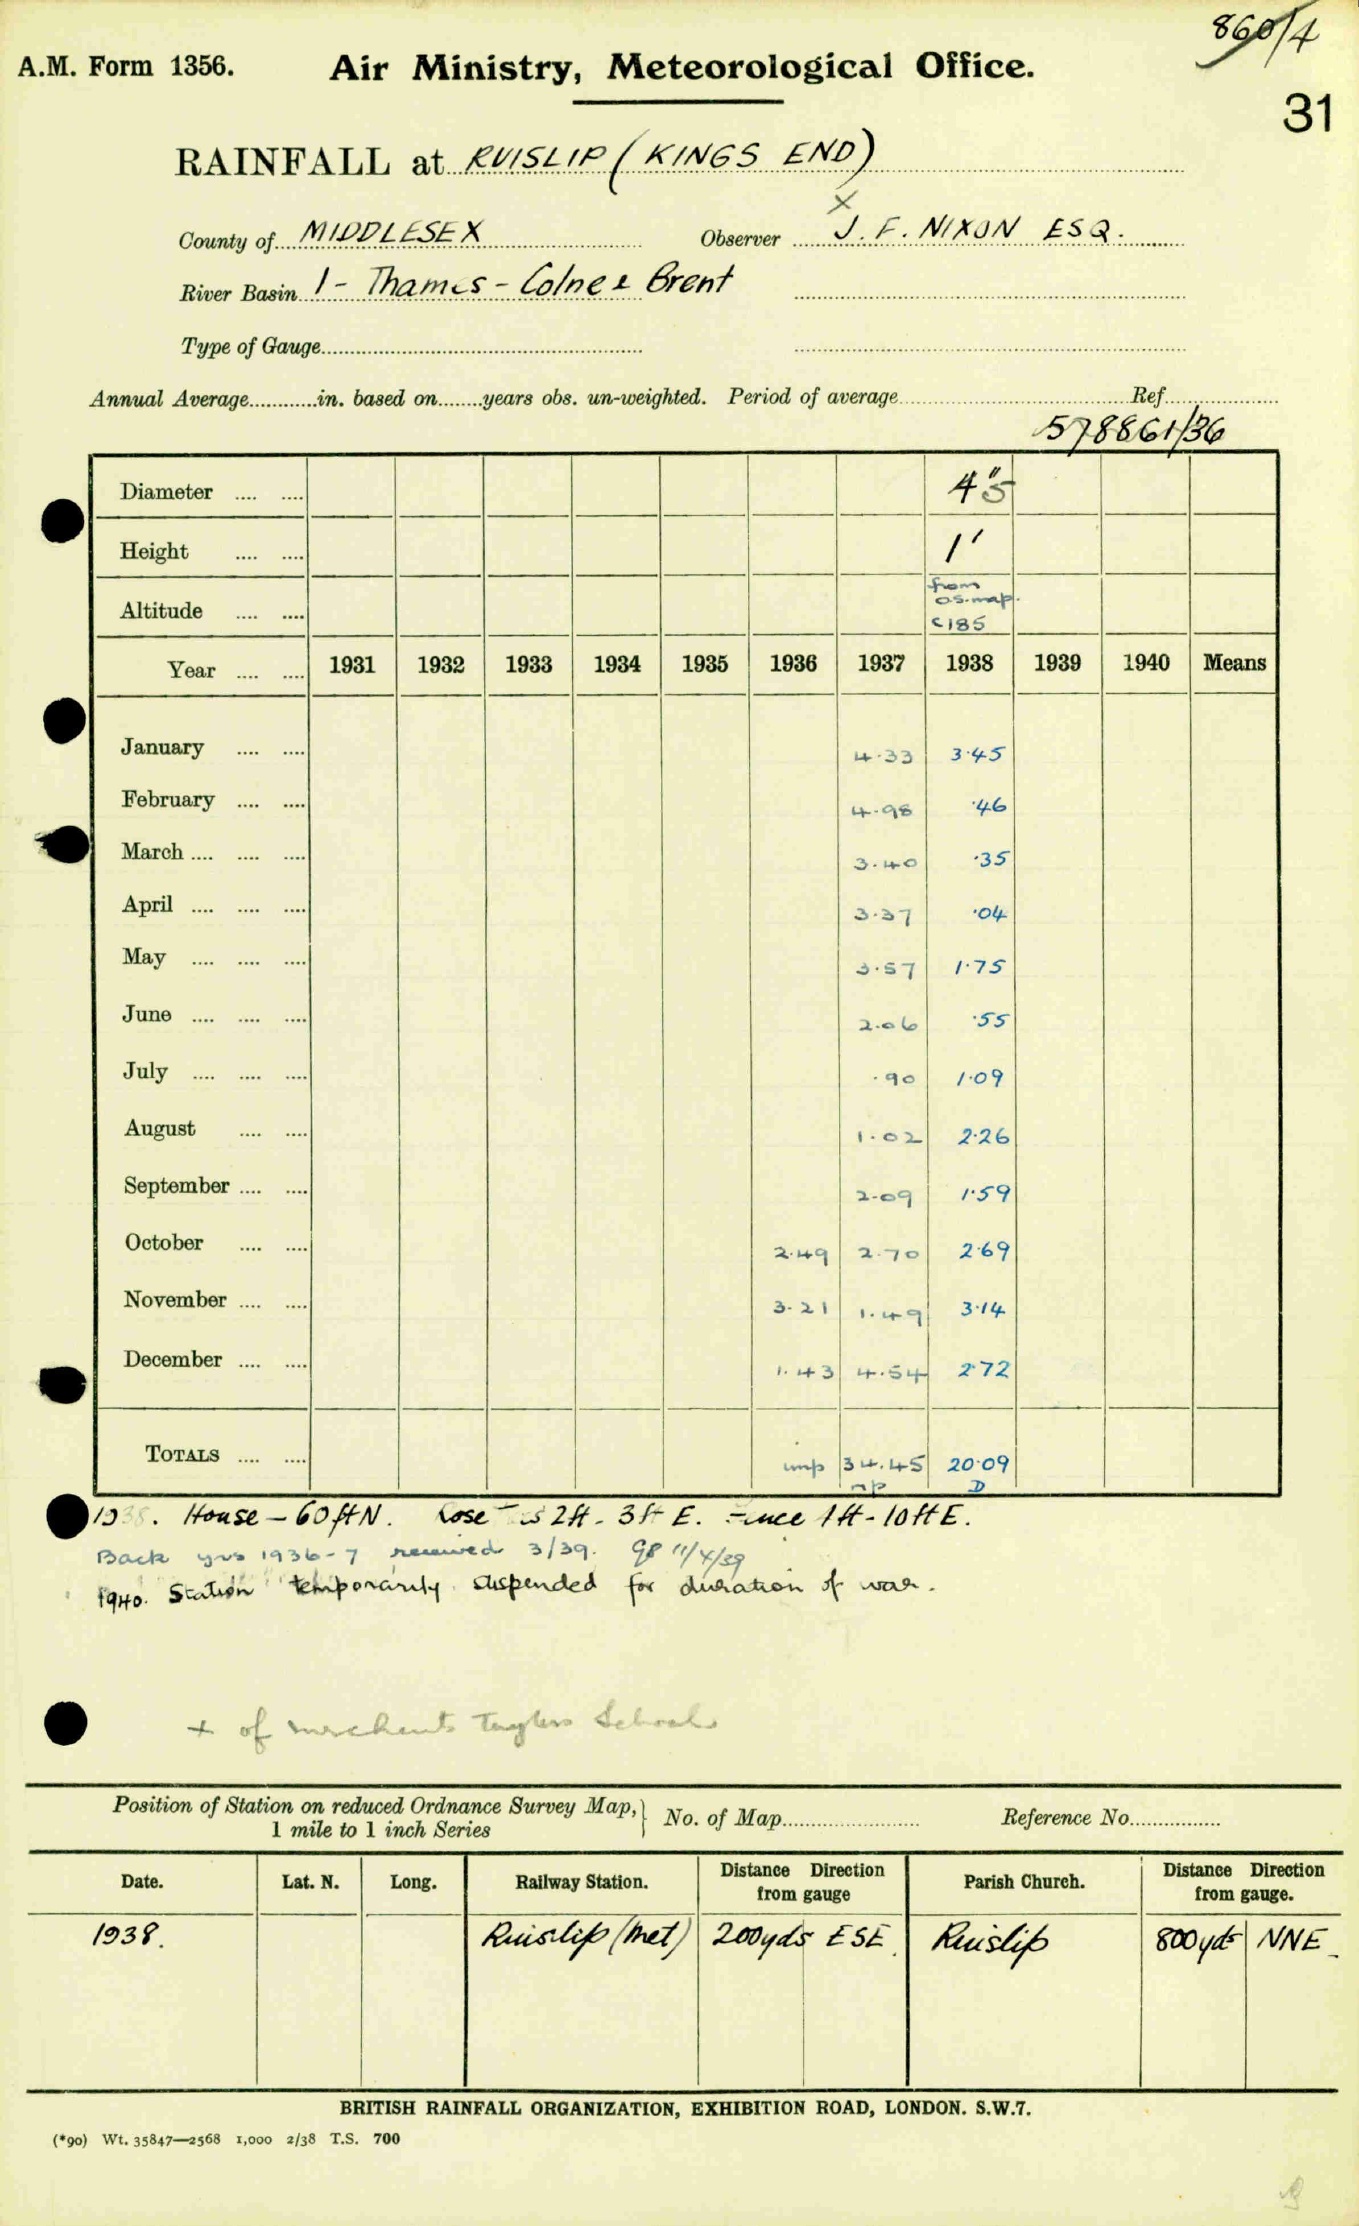 860/4
A.M. Form 1356. Air Ministry, Meteorological Office.
31
RAINFALL at RUISLIP (KINGS END)
County of MIDDLESEX Observer X J. F. NIXON ESQ.
River Basin 1 - Thames - Colne & Brent
Type of Gauge
Annual Average in. based on years obs. un-weighted. Period of average Ref.
578861/36
Diameter 4"5
Height 1'
Altitude from O.S. map. c185
Year 1931 1932 1933 1934 1935 1936 1937 1938 1939 1940 Means
January 4.33 3.45
February 4.98 .46
March 3.40 .35
April 3.37 .04
May 3.57 1.75
June 2.06 .55
July .90 1.09
August 1.02 2.26
September 2.09 1.59
October 2.49 2.70 2.69
November 3.21 1.49 3.14
December 1.43 4.54 2.72
TOTALS imp 34.45 20.09
np D
1938. House - 60 ft N. Rose 2ft - 3ft E. Fence 1ft - 10ft E.
Back yrs 1936-7 received 3/39. 11/4/39
1940. Station temporarily suspended for duration of war.
+ of Merchant Taylors School
Position of Station on reduced Ordnance Survey Map, 1 mile to 1 inch Series No. of Map Reference No.
Date. Lat. N. Long. Railway Station. Distance Direction from gauge Parish Church. Distance Direction from gauge.
1938. Ruislip (Met) 200yds ESE. Ruislip 800yds NNE
BRITISH RAINFALL ORGANIZATION, EXHIBITION ROAD, LONDON. S.W.7.
(*90) Wt. 35847—2568 1,000 2/38 T.S. 700